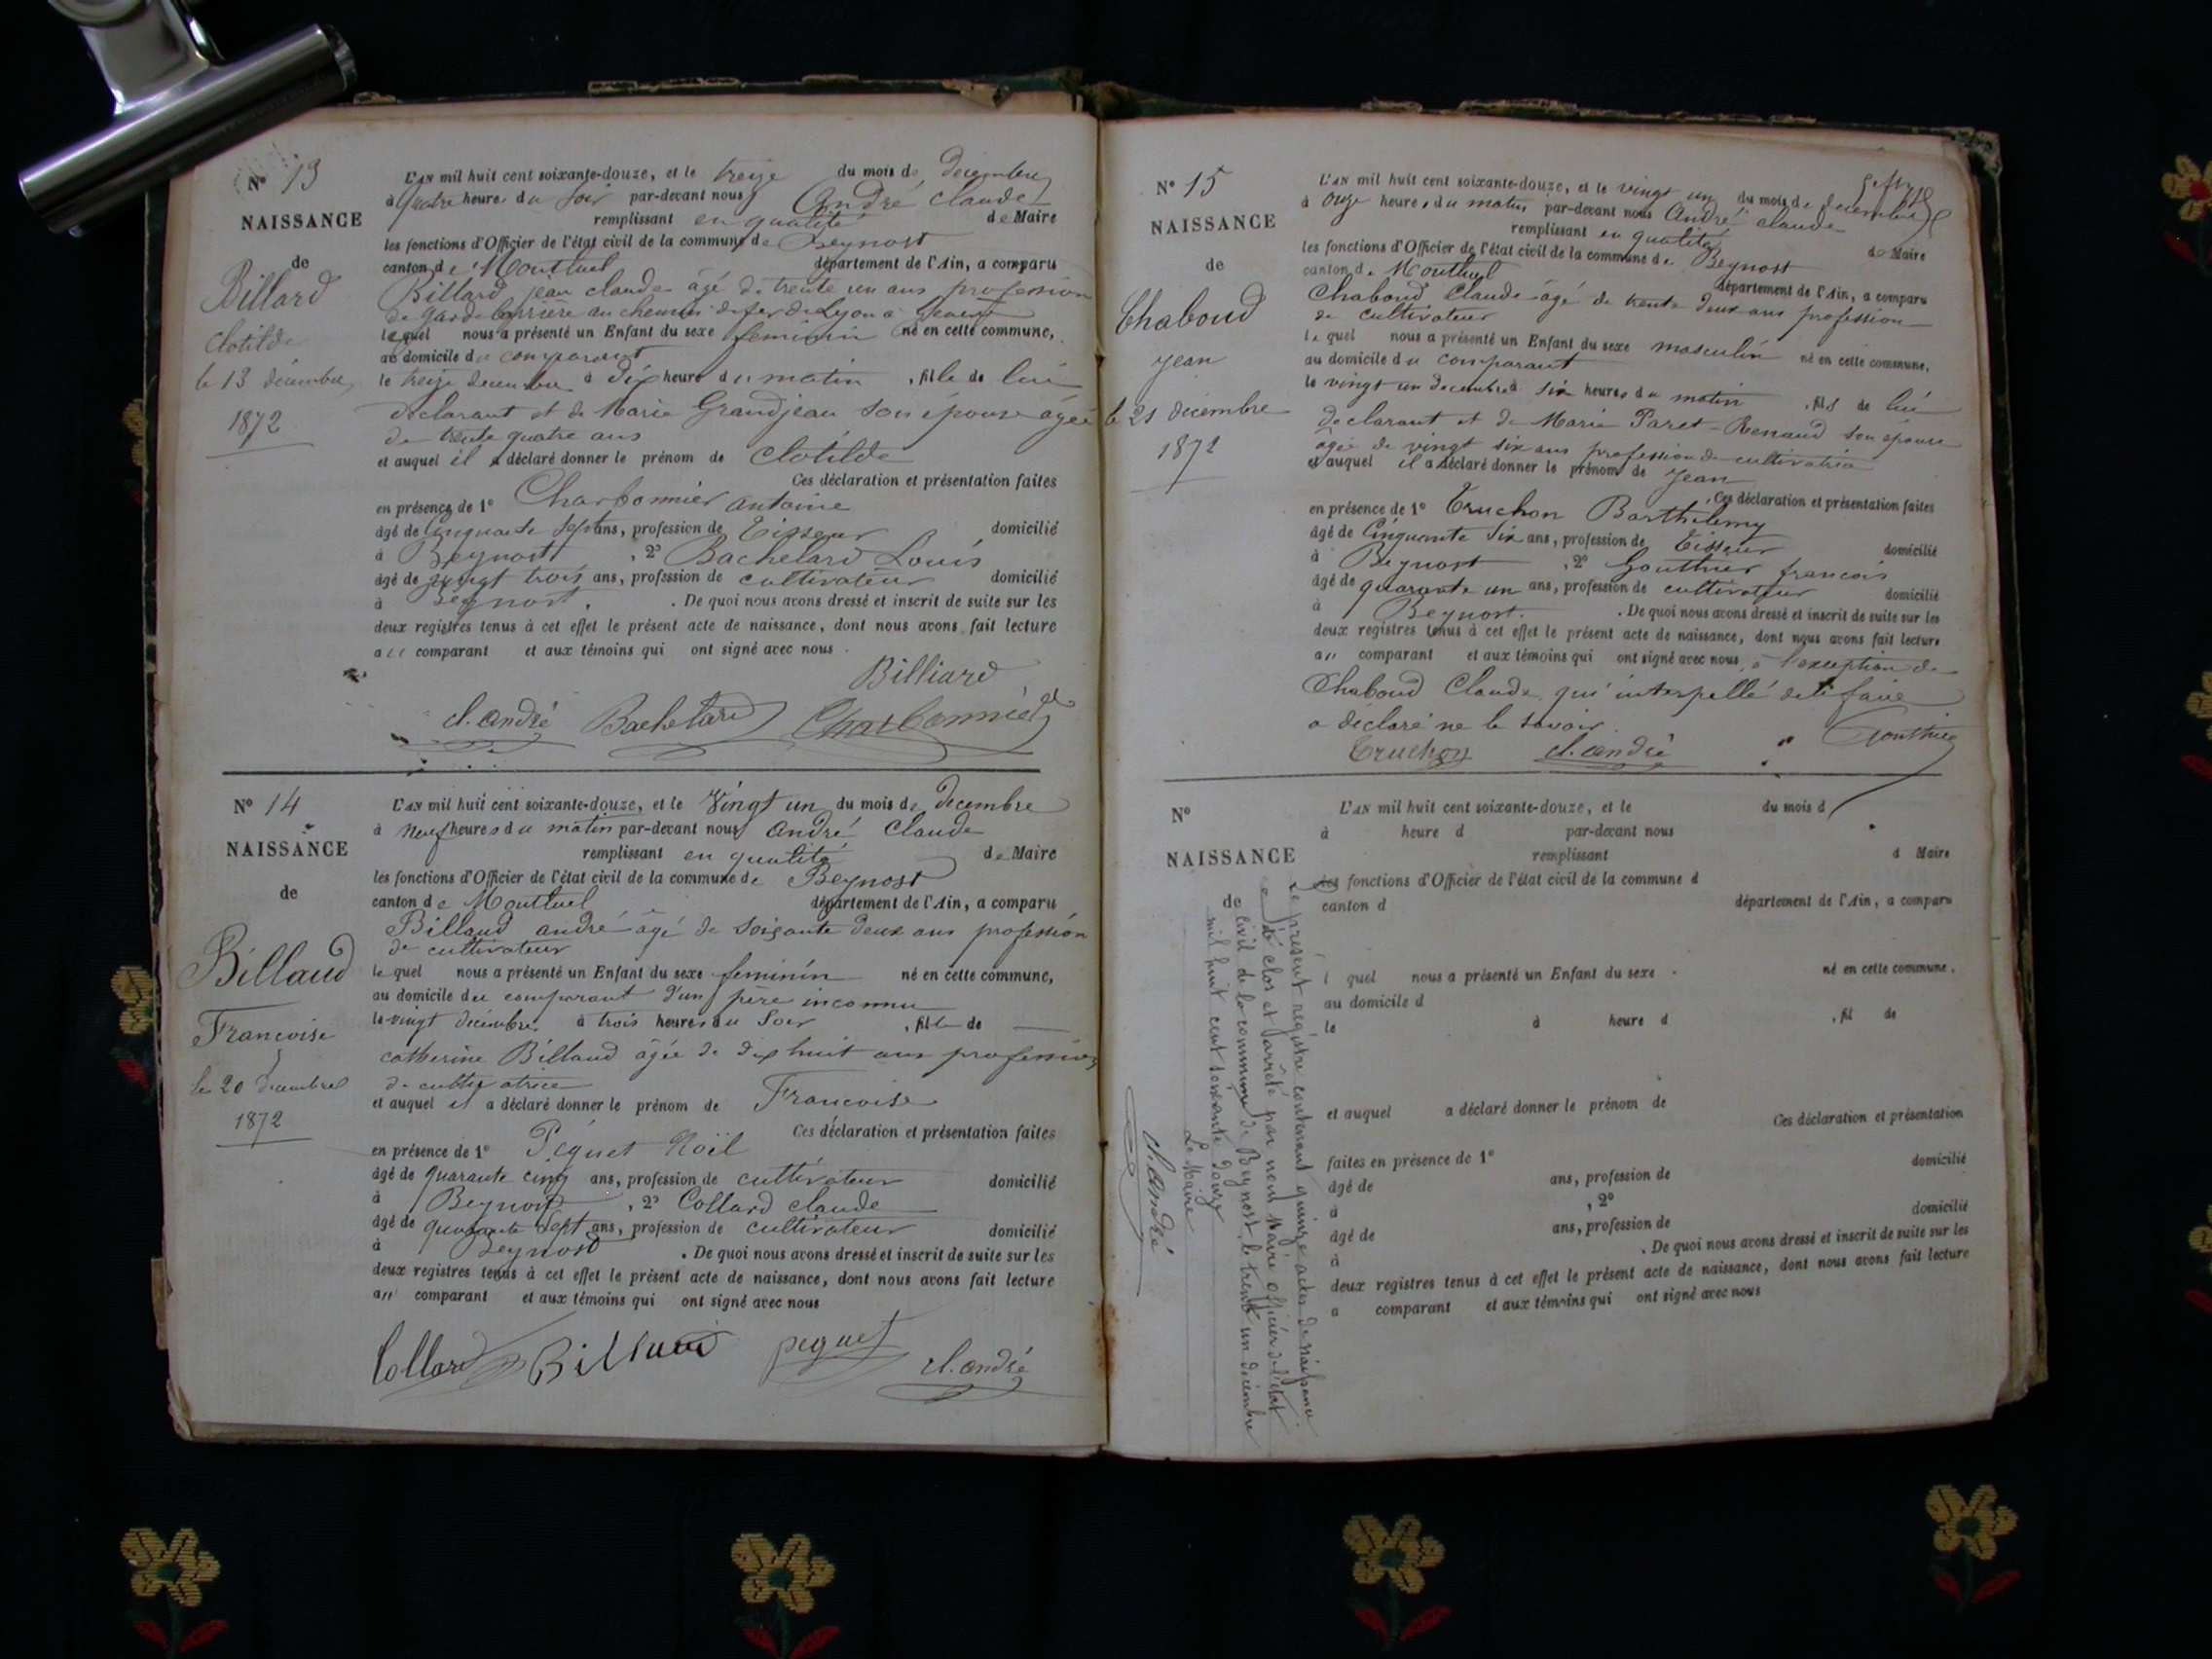 N° 13
NAISSANCE
de
Billard
Clotilde
le 13 décembre
1872
L'AN mil huit cent soixante-douze, et le treize du mois de décembre
à quatre heures du soir par-devant nous André Claude
remplissant en qualité de Maire
les fonctions d'Officier de l'état civil de la commune de Beynost
canton de Montluel département de l'Ain, a comparu
Billard jean claude âgé de trente un ans profession
de garde barrière au chemin de fer de Lyon à
lequel nous a présenté un Enfant du sexe feminin né en cette commune,
au domicile du comparant
le treize decembre à dix heures du matin , fille de lui
déclarant et de Marie Grandjean son épouse âgée
de trente quatre ans
et auquel il a déclaré donner le prénom de Clotilde
Ces déclaration et présentation faites
en présence de 1° Charbonnier antoine
âgé de cinquante sept ans, profession de Tisseur domicilié
à Beynost , 2° Bachelard Louis
âgé de vingt trois ans, profession de cultivateur domicilié
à Beynost . De quoi nous avons dressé et inscrit de suite sur les
deux registres tenus à cet effet le présent acte de naissance, dont nous avons fait lecture
au comparant et aux témoins qui ont signé avec nous .
Billiard
cl. andré Bachelard Charbonnier
N° 14
NAISSANCE
de
Billaud
Francoise
le 20 décembre
1872
L'AN mil huit cent soixante-douze, et le Vingt un du mois de decembre
à neuf heures du matin par-devant nous andré Claude
remplissant en qualité de Maire
les fonctions d'Officier de l'état civil de la commune de Beynost
canton de Montluel département de l'Ain, a comparu
Billaud andré âgé de soixante deux ans profession
de cultivateur
lequel nous a présenté un Enfant du sexe feminin né en cette commune,
au domicile du comparant d'un père inconnu
le vingt décembre à trois heures du soir , fille de
catherine Billaud âgée de dix huit ans profession
de cultivatrice
et auquel il a déclaré donner le prénom de Francoise
Ces déclaration et présentation faites
en présence de 1° Péguet Noël
âgé de quarante cinq ans, profession de cultivateur domicilié
à Beynost , 2° Collard claude
âgé de quarante sept ans, profession de cultivateur domicilié
à Beynost . De quoi nous avons dressé et inscrit de suite sur les
deux registres tenus à cet effet le présent acte de naissance, dont nous avons fait lecture
au comparant et aux témoins qui ont signé avec nous
Collard Billaud peguet cl. andré
N° 15
NAISSANCE
de
Chaboud
jean
le 21 décembre
1872
L'AN mil huit cent soixante-douze, et le vingt un du mois de decembre
à onze heures du matin par-devant nous André claude
remplissant en qualité de Maire
les fonctions d'Officier de l'état civil de la commune de Beynost
canton de Montluel département de l'Ain, a comparu
Chaboud Claude âgé de trente deux ans profession
de cultivateur
lequel nous a présenté un Enfant du sexe masculin né en cette commune,
au domicile du comparant
le vingt un decembre à six heures du matin , fils de lui
declarant et de Marie Paret-Renaud son épouse
agée de vingt six ans profession de cultivatrice
et auquel il a déclaré donner le prénom de jean
. Ces déclaration et présentation faites
en présence de 1° Truchon Barthélemy
âgé de Cinquante six ans, profession de Tisseur domicilié
à Beynost , 2° Gouthier francois
âgé de quarante un ans, profession de cultivateur domicilié
à Beynost. . De quoi nous avons dressé et inscrit de suite sur les
deux registres tenus à cet effet le présent acte de naissance, dont nous avons fait lecture
au comparant et aux témoins qui ont signé avec nous à l'exception de
Chaboud Claude qui interpellé de le faire
a déclaré ne le savoir.
Truchon cl. andré Gouthier
N°
NAISSANCE
de
L'AN mil huit cent soixante-douze, et le du mois d
à heure d par-devant nous
remplissant d Maire
les fonctions d'Officier de l'état civil de la commune d
canton d département de l'Ain, a comparu
l quel nous a présenté un Enfant du sexe né en cette commune.
au domicile d
le à heure d , fil de
et auquel a déclaré donner le prénom de
Ces déclaration et présentation
faites en présence de 1° domicilié
âgé de ans, profession de
à , 2° domicilié
âgé de ans, profession de
à . De quoi nous avons dressé et inscrit de suite sur les
deux registres tenus à cet effet le présent acte de naissance, dont nous avons fait lecture
a comparant et aux témoins qui ont signé avec nous
Le présent registre contenant quinze actes de naissance
a été clos et arrêté par nous Maire officier de l'état
civil de la commune de Beynost, le trente un décembre
mil huit cent soixante douze
Le Maire
cl. andré